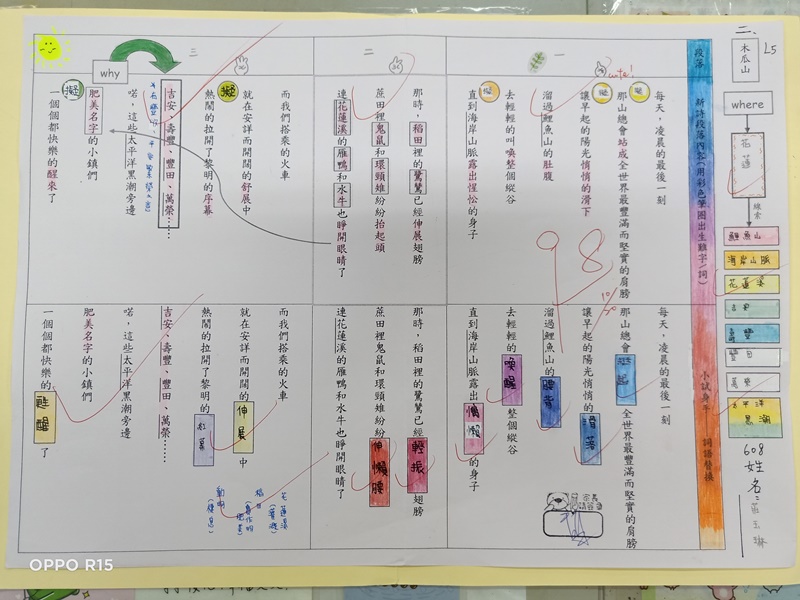 二、
木瓜山
L5
where
花蓮
線索
鯉魚山
海岸山脈
花蓮溪
吉安
壽豐
豐田
萬榮
太平洋
黑潮
608
姓名:
段落
新詩段落內容(用彩色筆圈出生難字/詞)
小試身手
詞語替換
一
每天,凌晨的最後一刻
那山總會站成全世界最豐滿而堅實的肩膀
讓早起的陽光悄悄的滑下
溜過鯉魚山的肚腹
去輕輕的叫喚整個縱谷
直到海岸山脈露出惺忪的身子
擬
擬
擬
cute!
98
10/30
二
那時,稻田裡的鷺鷥已經伸展翅膀
蔗田裡鬼鼠和環頸雉紛紛抬起頭
連花蓮溪的雁鴨和水牛也睜開眼睛了
三
而我們搭乘的火車
就在安詳而開闊的舒展中
熱鬧的拉開了黎明的序幕
吉安、壽豐、豐田、萬榮……
喏,這些太平洋黑潮旁邊
肥美名字的小鎮們
一個個都快樂的醒來了
擬
擬
why
每天,凌晨的最後一刻
那山總會挺起全世界最豐滿而堅實的肩膀
讓早起的陽光悄悄的滑落
溜過鯉魚山的腰背
去輕輕的喚醒整個縱谷
直到海岸山脈露出慵懶的身子
那時,稻田裡的鷺鷥已經輕振翅膀
蔗田裡鬼鼠和環頸雉紛紛伸懶腰
連花蓮溪的雁鴨和水牛也睜開眼睛了
而我們搭乘的火車
就在安詳而開闊的伸展中
熱鬧的拉開了黎明的紅幕
吉安、壽豐、豐田、萬榮……
喏,這些太平洋黑潮旁邊
肥美名字的小鎮們
一個個都快樂的甦醒了
花蓮溪
稻田
動物
OPPO R15